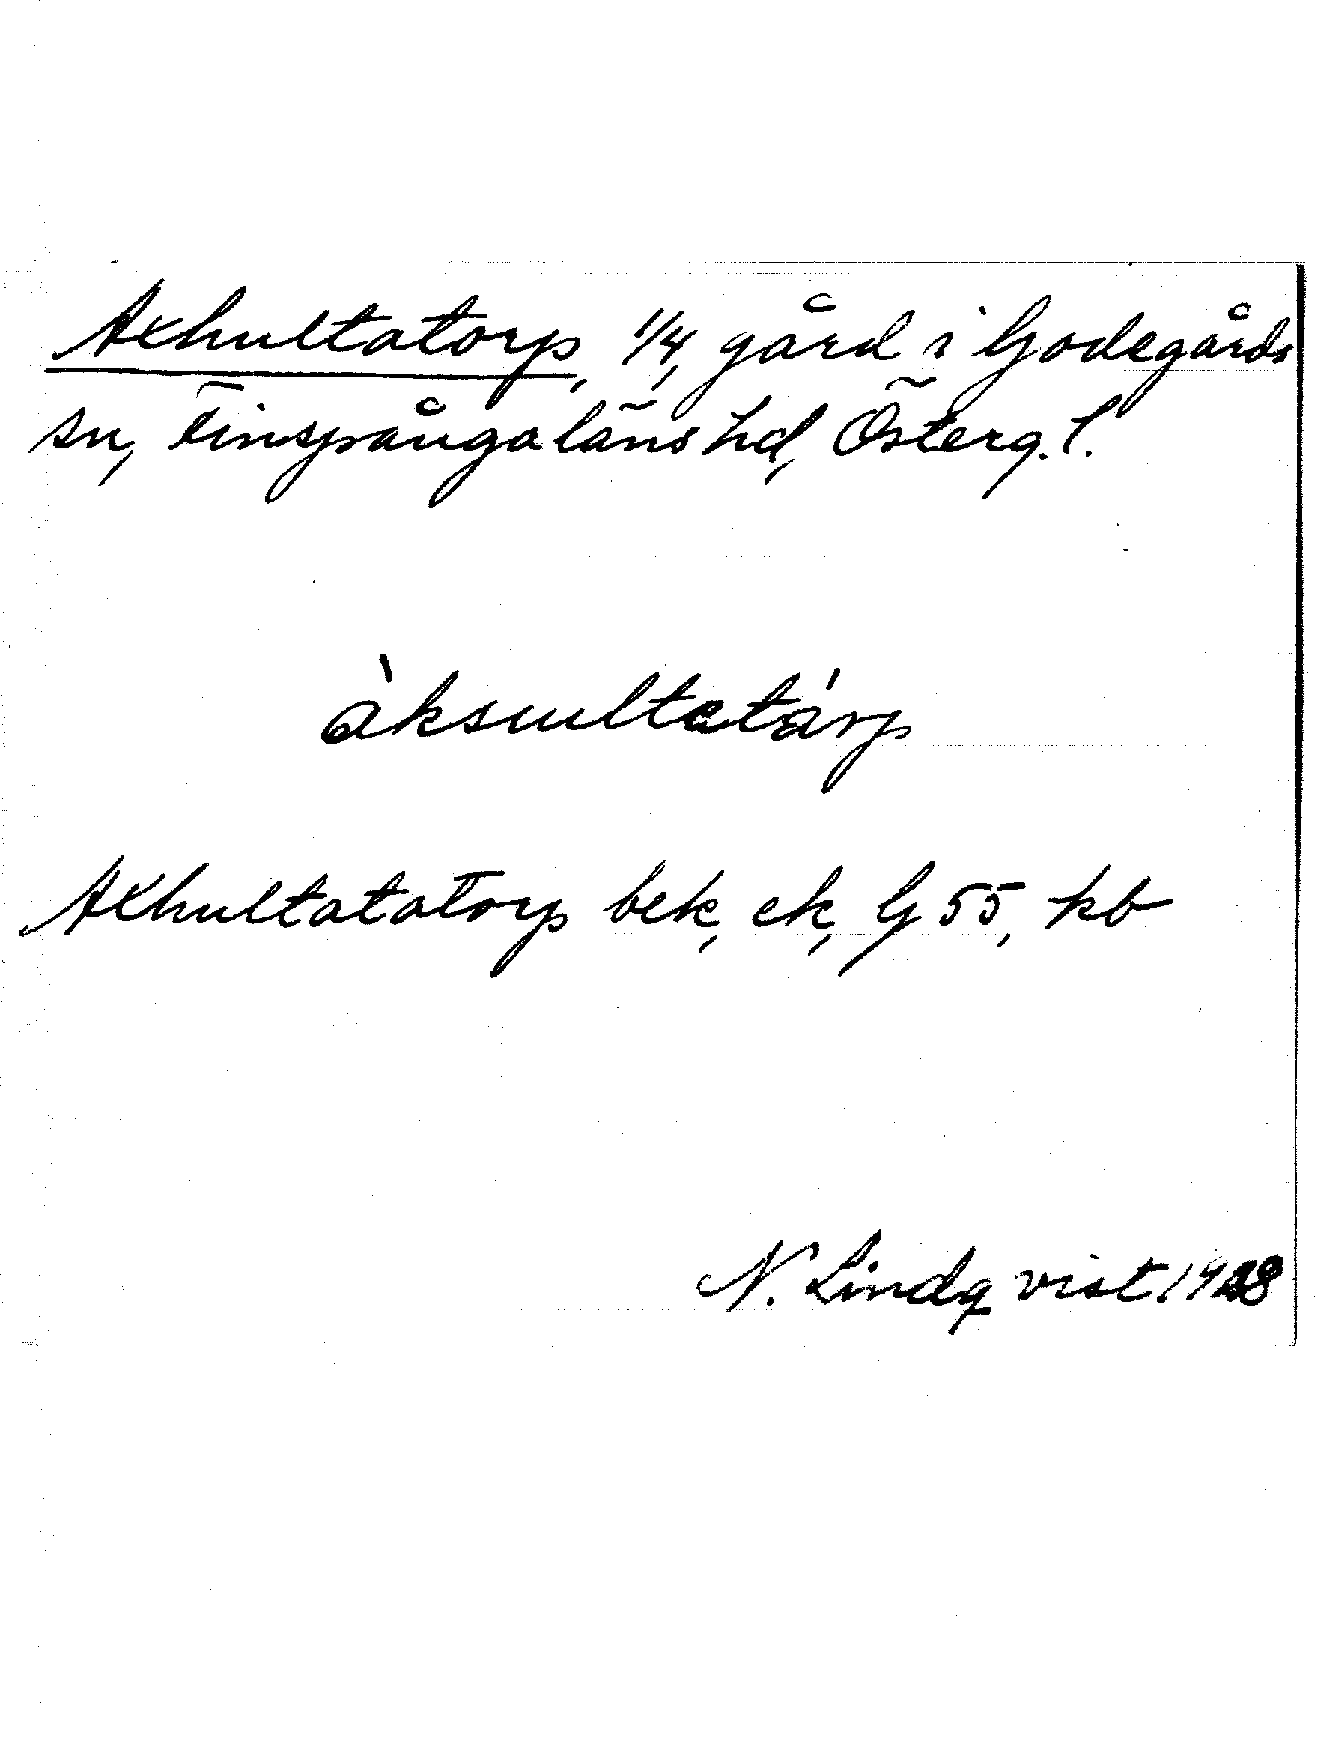 Axhultatorp, 1/4, gård i Godegårds
sn, Finspånga läns hd, Österg. l.
àksultetárp
Axhultatatorp bek, ek, G 55, kb
N. Lindqvist 1928